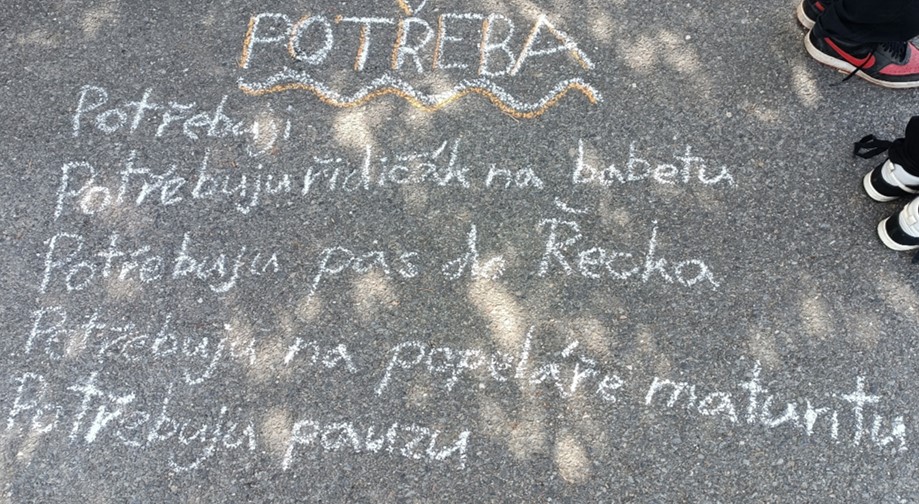 POTŘEBA
Potřebuji
Potřebuju řidičák na babetu
Potřebuju pas do Řecka
Potřebuju na popeláře maturitu
Potřebuju pauzu